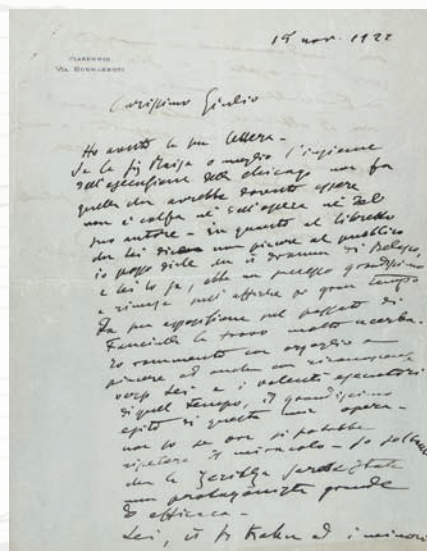 15 nov. 1922
VIAREGGIO
VIA BUONARROTI
Carissimo Giulio
Ho avuto la sua lettera -
Se la Sig Raisa o meglio l'insieme
dell'esecuzione della chicago non fu
quella che avrebbe dovuto essere
non è colpa nè dell'opera nè del
suo autore - in quanto al libretto
che lei dice non piacere al pubblico
io posso dirle che il dramma di Belasco,
e lei lo sa, ebbe un successo grandissimo
e rimase sull'affiche per gran tempo
La sua esposizione sul passato di
Fanciulla la trovo molto acerba.
Io rammento con orgoglio e
piacere ed anche con riconoscenza
verso Lei e i valenti esecutori
di quel tempo, il grandissimo
esito di questa mia opera -
non so se ora si potrebbe
ripetere il miracolo - So soltanto
che la Jeritza sarebbe stata
una protagonista grande
ed efficace -
Lei, il Kahn ed i minori